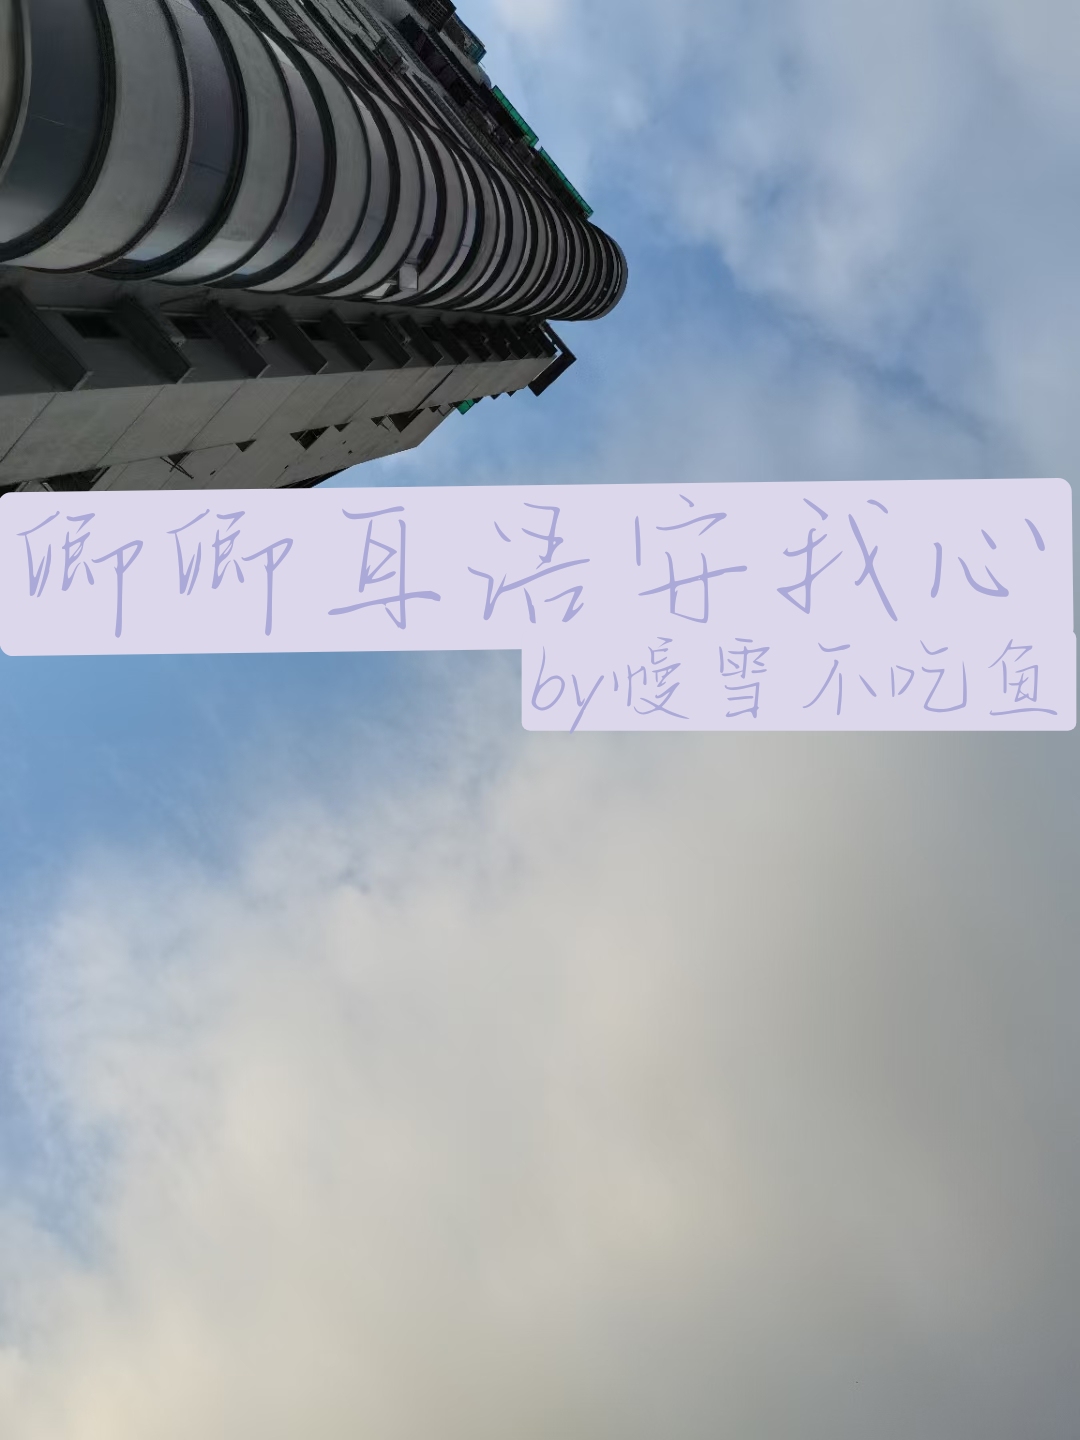 卿卿耳语安我心
by幔雪不吃鱼